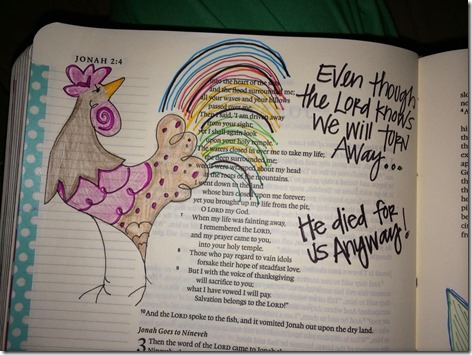 JONAH 2:4
into the heart of the seas,
and the flood surrounded me;
all your waves and your billows
passed over me.
Then I said, 'I am driven away
from your sight;
yet I shall again look
upon your holy temple.'
The waters closed in over me to take my life;
the deep surrounded me;
weeds were wrapped about my head
at the roots of the mountains.
I went down to the land
whose bars closed upon me forever;
yet you brought up my life from the pit,
O LORD my God.
When my life was fainting away,
I remembered the LORD,
and my prayer came to you,
into your holy temple.
Those who pay regard to vain idols
forsake their hope of steadfast love.
But I with the voice of thanksgiving
will sacrifice to you;
what I have vowed I will pay.
Salvation belongs to the LORD!"
10 And the LORD spoke to the fish, and it vomited Jonah out upon the dry land.
Jonah Goes to Nineveh
3 Then the word of the LORD came to Jonah
Even though
the Lord knows
we will turn
Away...
He died for
us Anyway!